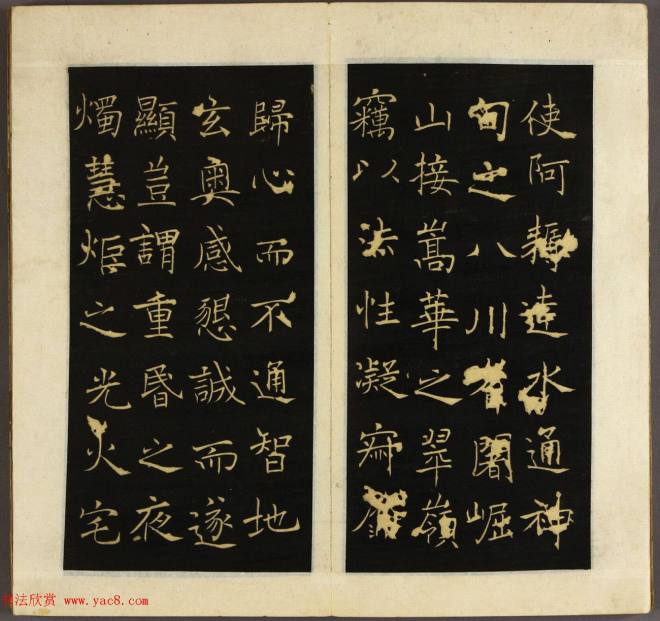 使阿耨達水通神
甸之八川耆闍崛
山接嵩華之翠嶺
竊以法性凝寂靡
歸心而不通智地
玄奧感懇誠而遂
顯豈謂重昬之夜
燭慧炬之光火宅
书法欣赏 www.yac8.com